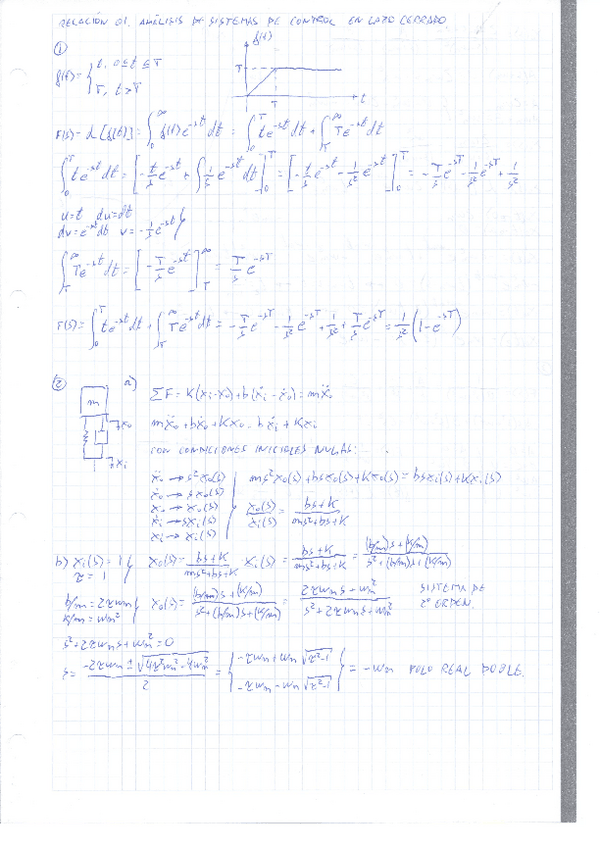 RELACIÓN 01. ANÁLISIS DE SISTEMAS DE CONTROL EN LAZO CERRADO
① f(t)
f(t) = { t, 0 ≤ t ≤ T
T, t > T
T
T t
F(s) = L[f(t)] = ∫₀^∞ f(t) e^{-st} dt = ∫₀^T t e^{-st} dt + ∫_T^∞ T e^{-st} dt
∫₀^T t e^{-st} dt = [-t/s e^{-st} + ∫ 1/s e^{-st} dt]₀^T = [-t/s e^{-st} - 1/s² e^{-st}]₀^T = -T/s e^{-sT} - 1/s² e^{-sT} + 1/s²
u = t du = dt
dv = e^{-st} dt v = -1/s e^{-st} }
∫_T^∞ T e^{-st} dt = [-T/s e^{-st}]_T^∞ = T/s e^{-sT}
F(s) = ∫₀^T t e^{-st} dt + ∫_T^∞ T e^{-st} dt = -T/s e^{-sT} - 1/s² e^{-sT} + 1/s² + T/s e^{-sT} = 1/s² (1 - e^{-sT})
② a) ΣF = K(xi - xo) + b(ẋi - ẋo) = mẍo
m
xo
xi
mẍo + bẋo + Kxo = bẋi + Kxi
CON CONDICIONES INICIALES NULAS:
ẍo → s² Xo(s)
ẋo → s Xo(s)
xo → Xo(s)
ẋi → s Xi(s)
xi → Xi(s)
ms² Xo(s) + bs Xo(s) + K Xo(s) = bs Xi(s) + K Xi(s)
Xo(s)/Xi(s) = (bs + K)/(ms² + bs + K)
b) Xi(s) = 1 } Xo(s) = (bs + K)/(ms² + bs + K) Xi(s) = (bs + K)/(ms² + bs + K) = ((b/m)s + (K/m))/(s² + (b/m)s + (K/m))
ζ = 1
b/m = 2ζωn } Xo(s) = ((b/m)s + (K/m))/(s² + (b/m)s + (K/m)) = (2ζωn s + ωn²)/(s² + 2ζωn s + ωn²) SISTEMA DE
K/m = ωn² 2º ORDEN.
s² + 2ζωn s + ωn² = 0
s = (-2ζωn ± √(4ζ²ωn² - 4ωn²))/2 = { -ζωn + ωn √(ζ² - 1)
-ζωn - ωn √(ζ² - 1) } = -ωn POLO REAL DOBLE.